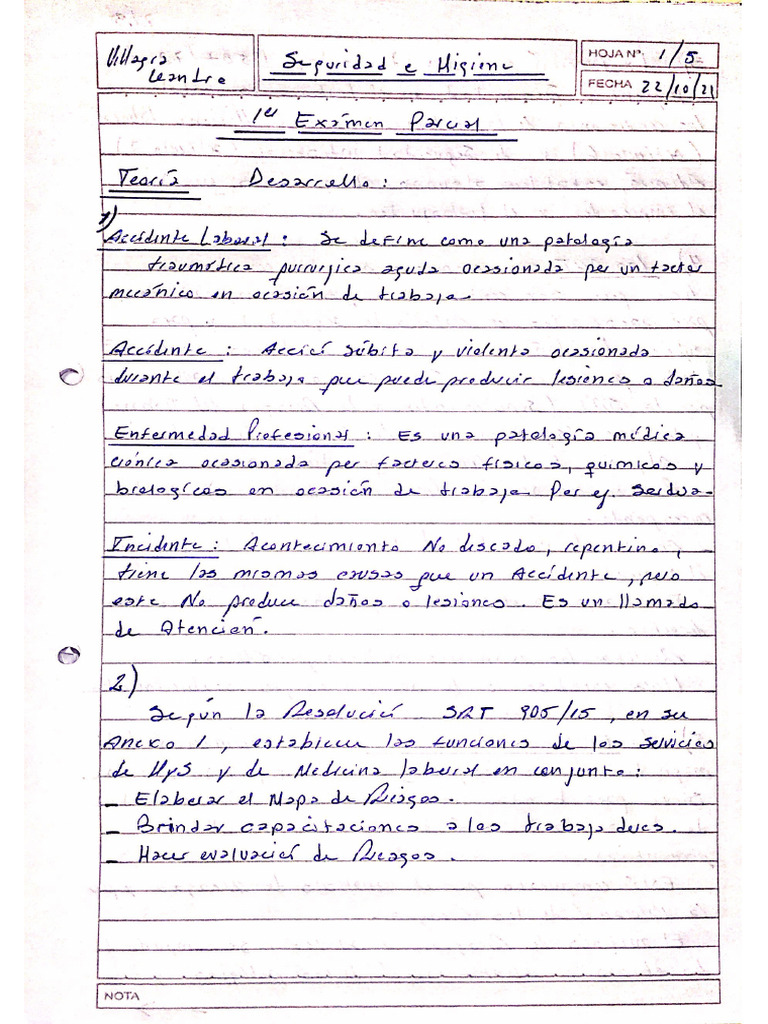 Villagra
Leandro
Seguridad e Higiene
HOJA Nº 1/5
FECHA 22/10/21
1er Exámen Parcial
Teoría Desarrollo:
1)
Accidente Laboral: Se define como una patología
traumática quirurgica aguda ocasionada por un factor
mecánico en ocasión de trabajo.
Accidente: Acción súbita y violenta ocasionada
durante el trabajo que puede producir lesiones o daños
Enfermedad Profesional: Es una patología médica
crónica ocasionada por factores físicos, químicos y
biologicos en ocasión de trabajo. Por ej. Sordera.
Incidente: Acontecimiento No deseado, repentino,
tiene las mismas causas que un Accidente, pero
este No produce daños o lesiones. Es un llamado
de Atención.
2)
Según la Resolución SRT 905/15, en su
Anexo 1, establecen las funciones de los servicios
de HyS y de Medicina laboral en conjunto:
- Elaborar el Mapa de Riesgos.
- Brindar capacitaciones a los trabajadores.
- Hacer evaluación de Riesgos.
NOTA